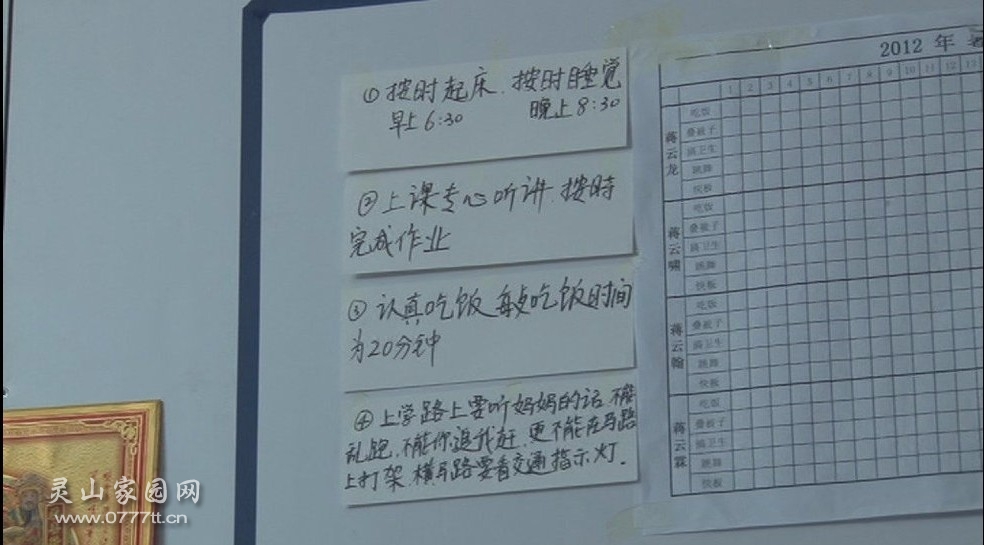 ①按时起床、按时睡觉
早上6:30 晚上8:30
②上课专心听讲、按时
完成作业
③认真吃饭、每点吃饭时间
为20分钟
④上学路上要听妈妈的话、不能
乱跑、不能你追我赶、更不能在马路
上打架、横马路要看交通指示灯.
2012 年
1 2 3 4 5 6 7 8 9 10 11 12 13
蒋云龙
吃饭
叠被子
搞卫生
跳舞
快板
蒋云啸
吃饭
叠被子
搞卫生
跳舞
快板
蒋云翰
吃饭
叠被子
搞卫生
跳舞
快板
蒋云霖
吃饭
叠被子
搞卫生
跳舞
快板
灵山家园网
www.0777tt.cn